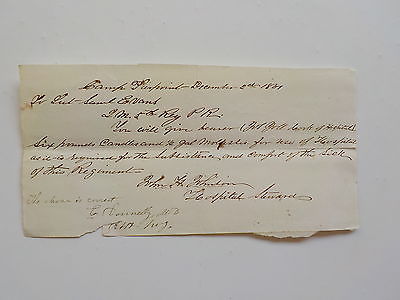 Camp Pierpont December 2d 1861
To Lieut Saml Evans
Q M 5th Reg P R
You will give bearer (Pvt Bell Cook of Hospital)
Six pounds Candles and ½ Gal Molasses for use of Hospital
as it is required for the Subsistence and comfort of the Sick
of this Regiment
John H Johnson
Hospital Steward
The above is correct
E Donnelly MD
5th Regt